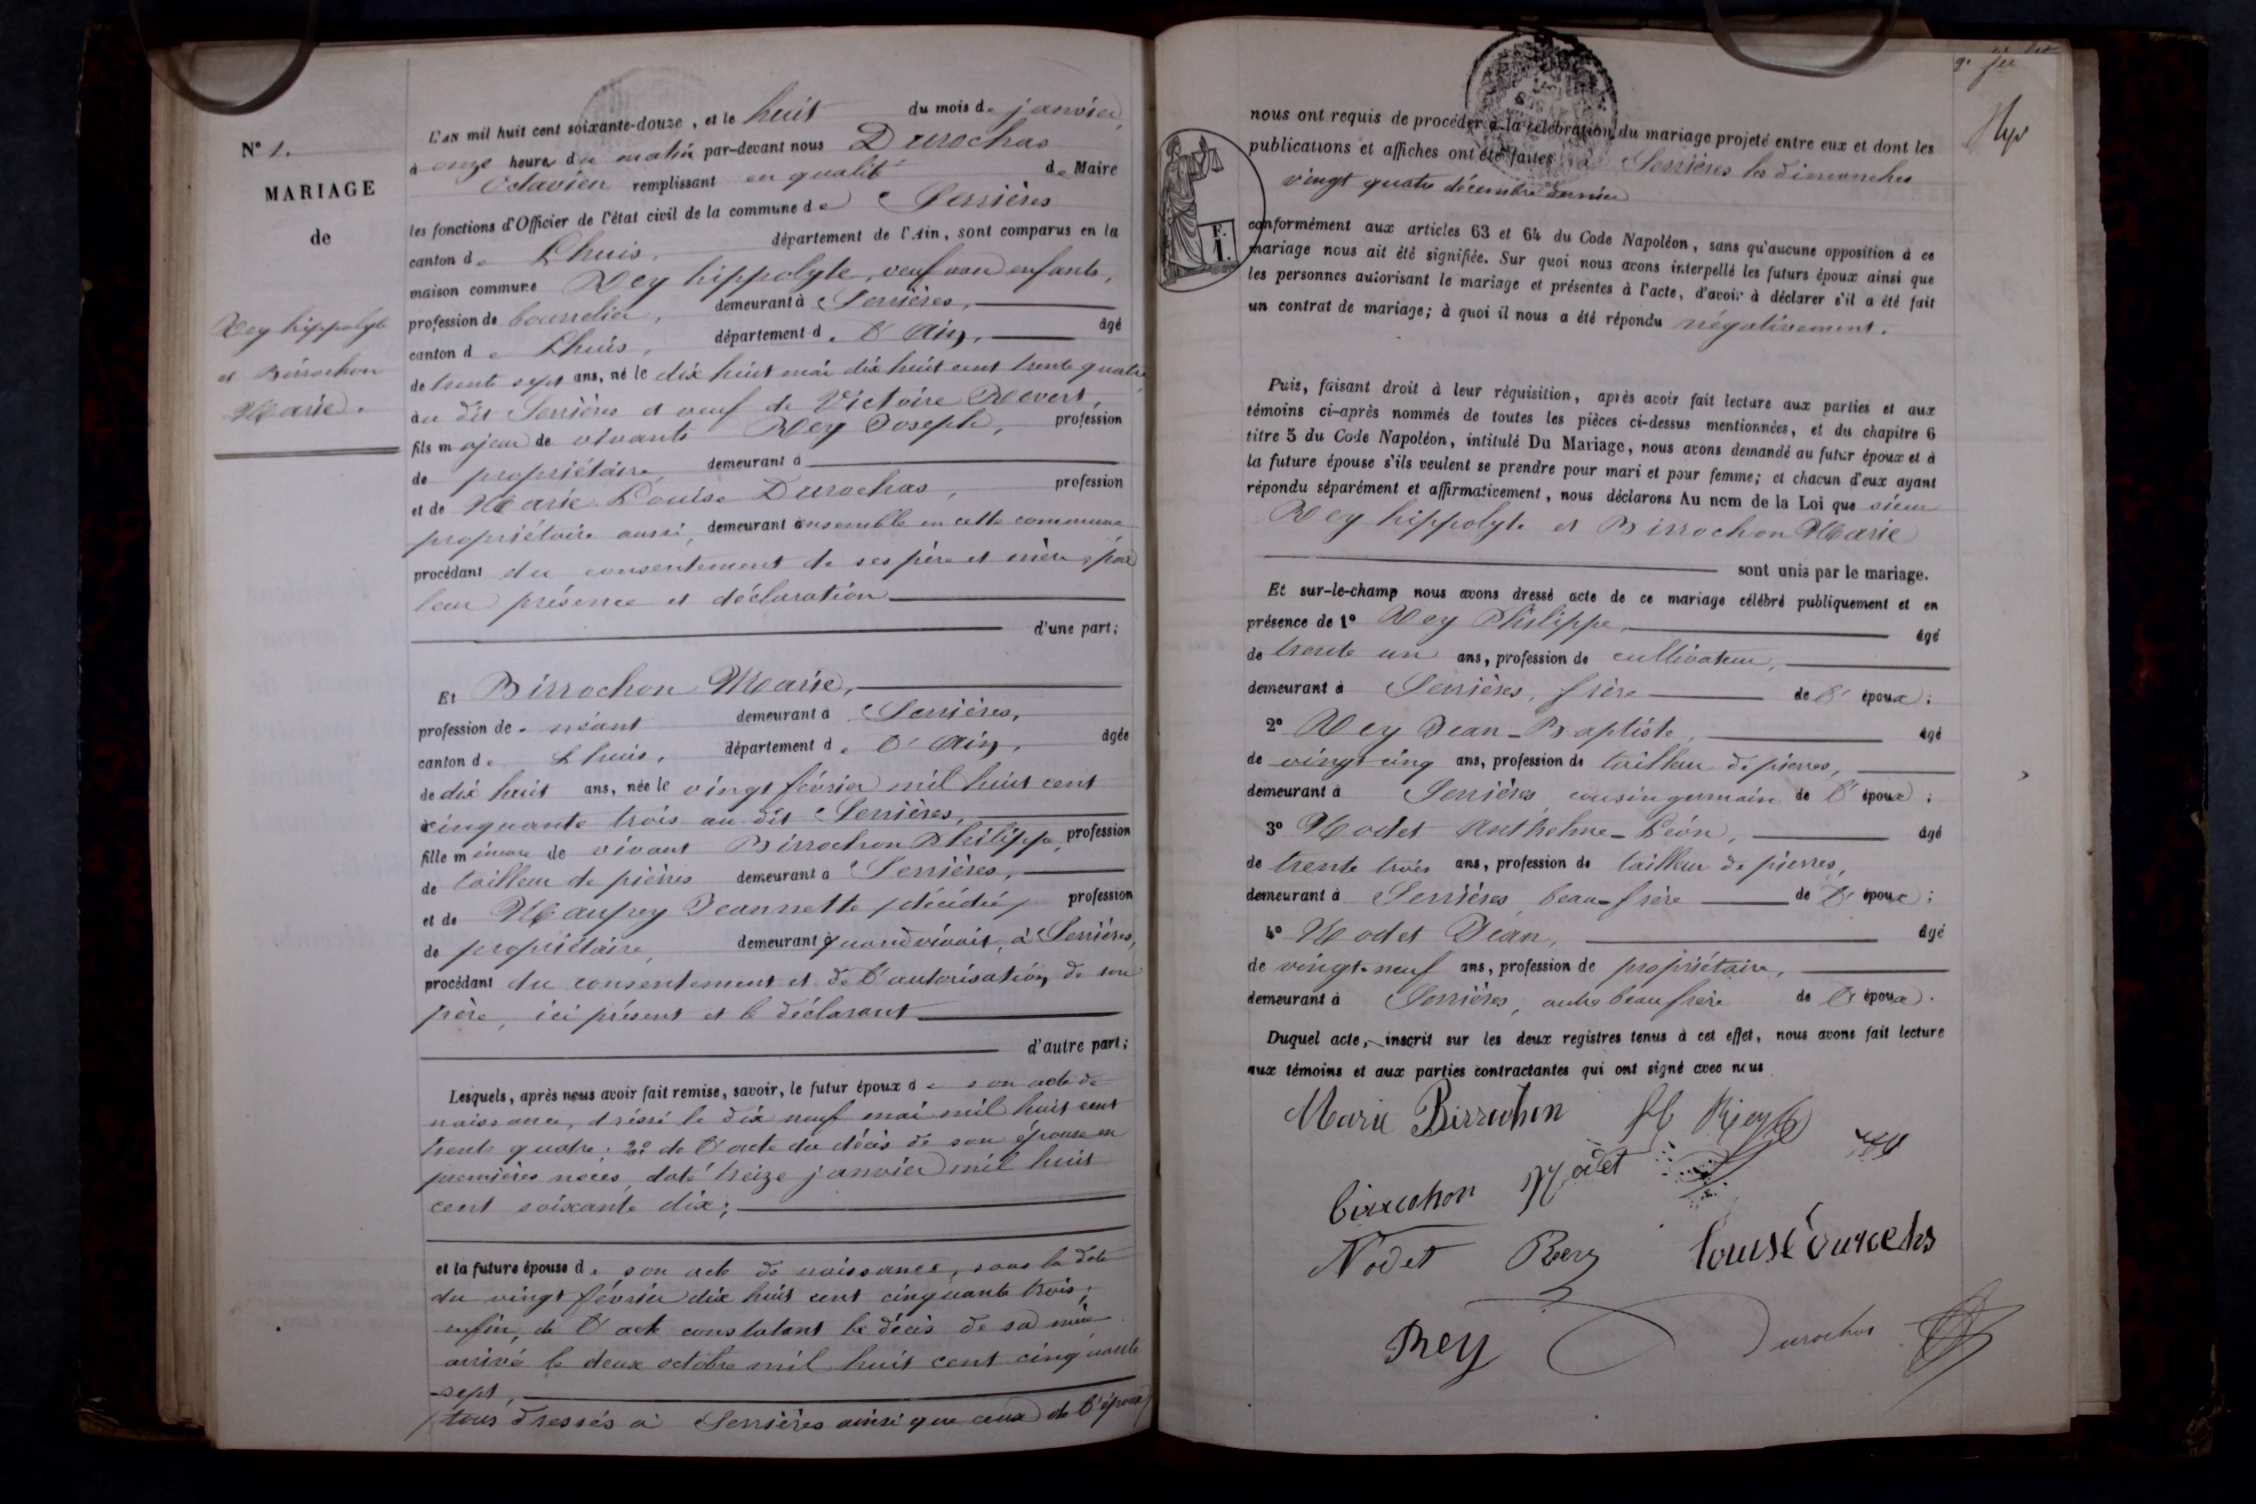 N° 1.
MARIAGE
de
Rey hippolyte
et Birrochon
Marie.
L'an mil huit cent soixante-douze, et le huit du mois de janvier,
à onze heures du matin par-devant nous Durochas
Octavien remplissant en qualité de Maire
les fonctions d'Officier de l'état civil de la commune de Serrières
canton de Lhuis, département de l'Ain, sont comparus en la
maison commune Rey hippolyte, veuf enfants,
profession de bourrelier, demeurant à Serrières,
canton de Lhuis, département de l'Ain, âgé
de trente sept ans, né le dix huit mai dix huit cent trente quatre
au dit Serrières et veuf de Victoire Revert,
fils majeur de vivants Rey Joseph, profession
de propriétaire, demeurant à
et de Marie Louise Durochas, profession
propriétaire aussi, demeurant ensemble en cette commune
procédant du consentement de ses père et mère, par
leur présence et déclaration
d'une part;
Et Birrochon Marie,
profession de néant demeurant à Serrières,
canton de Lhuis, département de l'Ain, âgée
de dix huit ans, née le vingt février mil huit cent
cinquante trois au dit Serrières,
fille mineure de vivant Birrochon Philippe, profession
de tailleur de pierres demeurant à Serrières,
et de Maufrey Jeannette (décédée) profession
de propriétaire, demeurant quand vivait, à Serrières,
procédant du consentement et de l'autorisation de son
père, ici présent et le déclarant
d'autre part;
Lesquels, après nous avoir fait remise, savoir, le futur époux de son acte de
naissance, dressé le dix neuf mai mil huit cent
trente quatre; 2° de l'acte du décès de son épouse en
premières noces, daté treize janvier mil huit
cent soixante dix;
et la future épouse de son acte de naissance, sous la date
du vingt février dix huit cent cinquante trois;
enfin, de l'acte constatant le décès de sa mère
arrivé le deux octobre mil huit cent cinquante
sept,
(tous dressés à Serrières ainsi que ceux de l'époux)
nous ont requis de procéder à la célébration du mariage projeté entre eux et dont les
publications et affiches ont été faites à Serrières les dimanches
vingt quatre décembre dernier
conformément aux articles 63 et 64 du Code Napoléon, sans qu'aucune opposition à ce
mariage nous ait été signifiée. Sur quoi nous avons interpellé les futurs époux ainsi que
les personnes autorisant le mariage et présentes à l'acte, d'avoir à déclarer s'il a été fait
un contrat de mariage; à quoi il nous a été répondu négativement.
Puis, faisant droit à leur réquisition, après avoir fait lecture aux parties et aux
témoins ci-après nommés de toutes les pièces ci-dessus mentionnées, et du chapitre 6
titre 5 du Code Napoléon, intitulé Du Mariage, nous avons demandé au futur époux et à
la future épouse s'ils veulent se prendre pour mari et pour femme; et chacun d'eux ayant
répondu séparément et affirmativement, nous déclarons Au nom de la Loi que sieur
Rey hippolyte et Birrochon Marie
sont unis par le mariage.
Et sur-le-champ nous avons dressé acte de ce mariage célébré publiquement et en
présence de 1° Rey Philippe, âgé
de trente un ans, profession de cultivateur,
demeurant à Serrières, frère de l'époux;
2° Rey Jean-Baptiste, âgé
de vingt cinq ans, profession de tailleur de pierres,
demeurant à Serrières, cousin germain de l'époux;
3° Nodet Anthelme-Léon, âgé
de trente trois ans, profession de tailleur de pierres,
demeurant à Serrières, beau-frère de l'époux;
4° Nodet Jean, âgé
de vingt-neuf ans, profession de propriétaire,
demeurant à Serrières, autre beau frère de l'époux.
Duquel acte, inscrit sur les deux registres tenus à cet effet, nous avons fait lecture
aux témoins et aux parties contractantes qui ont signé avec nous
Marie Birrochon Rey
birrochon Nodet
Nodet Rey Louise
Rey Durochas